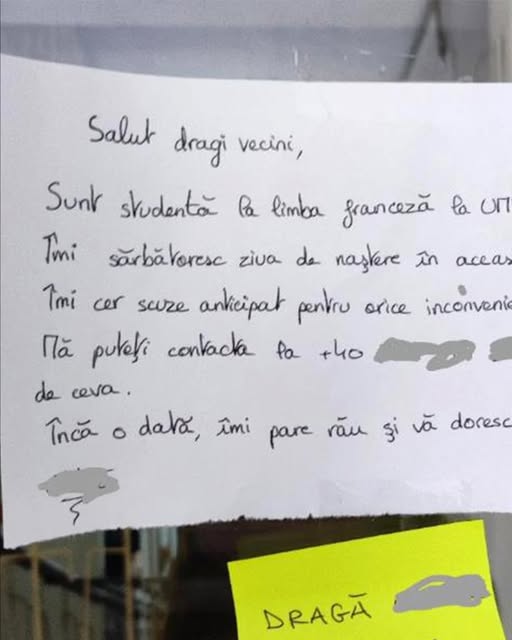 Salut dragi vecini,
Sunt studentă la limba franceză la
Îmi sărbătoresc ziua de naștere în aceas
Îmi cer scuze anticipat pentru orice inconvenie
Mă puteți contacta la +40
de ceva.
Încă o dată, îmi pare rău și vă doresc
DRAGĂ